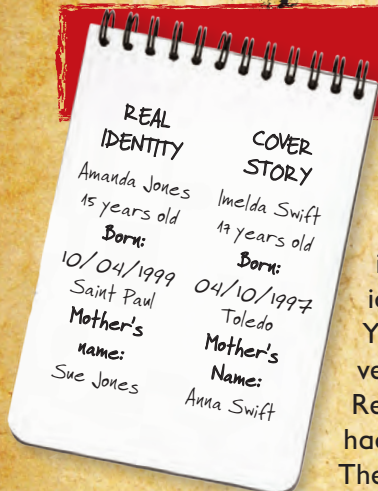 REAL
IDENTITY
Amanda Jones
15 years old
Born:
10/04/1999
Saint Paul
Mother's
name:
Sue Jones
COVER
STORY
Imelda Swift
17 years old
Born:
04/10/1997
Toledo
Mother's
Name:
Anna Swift
Y
ve
Re
had
The